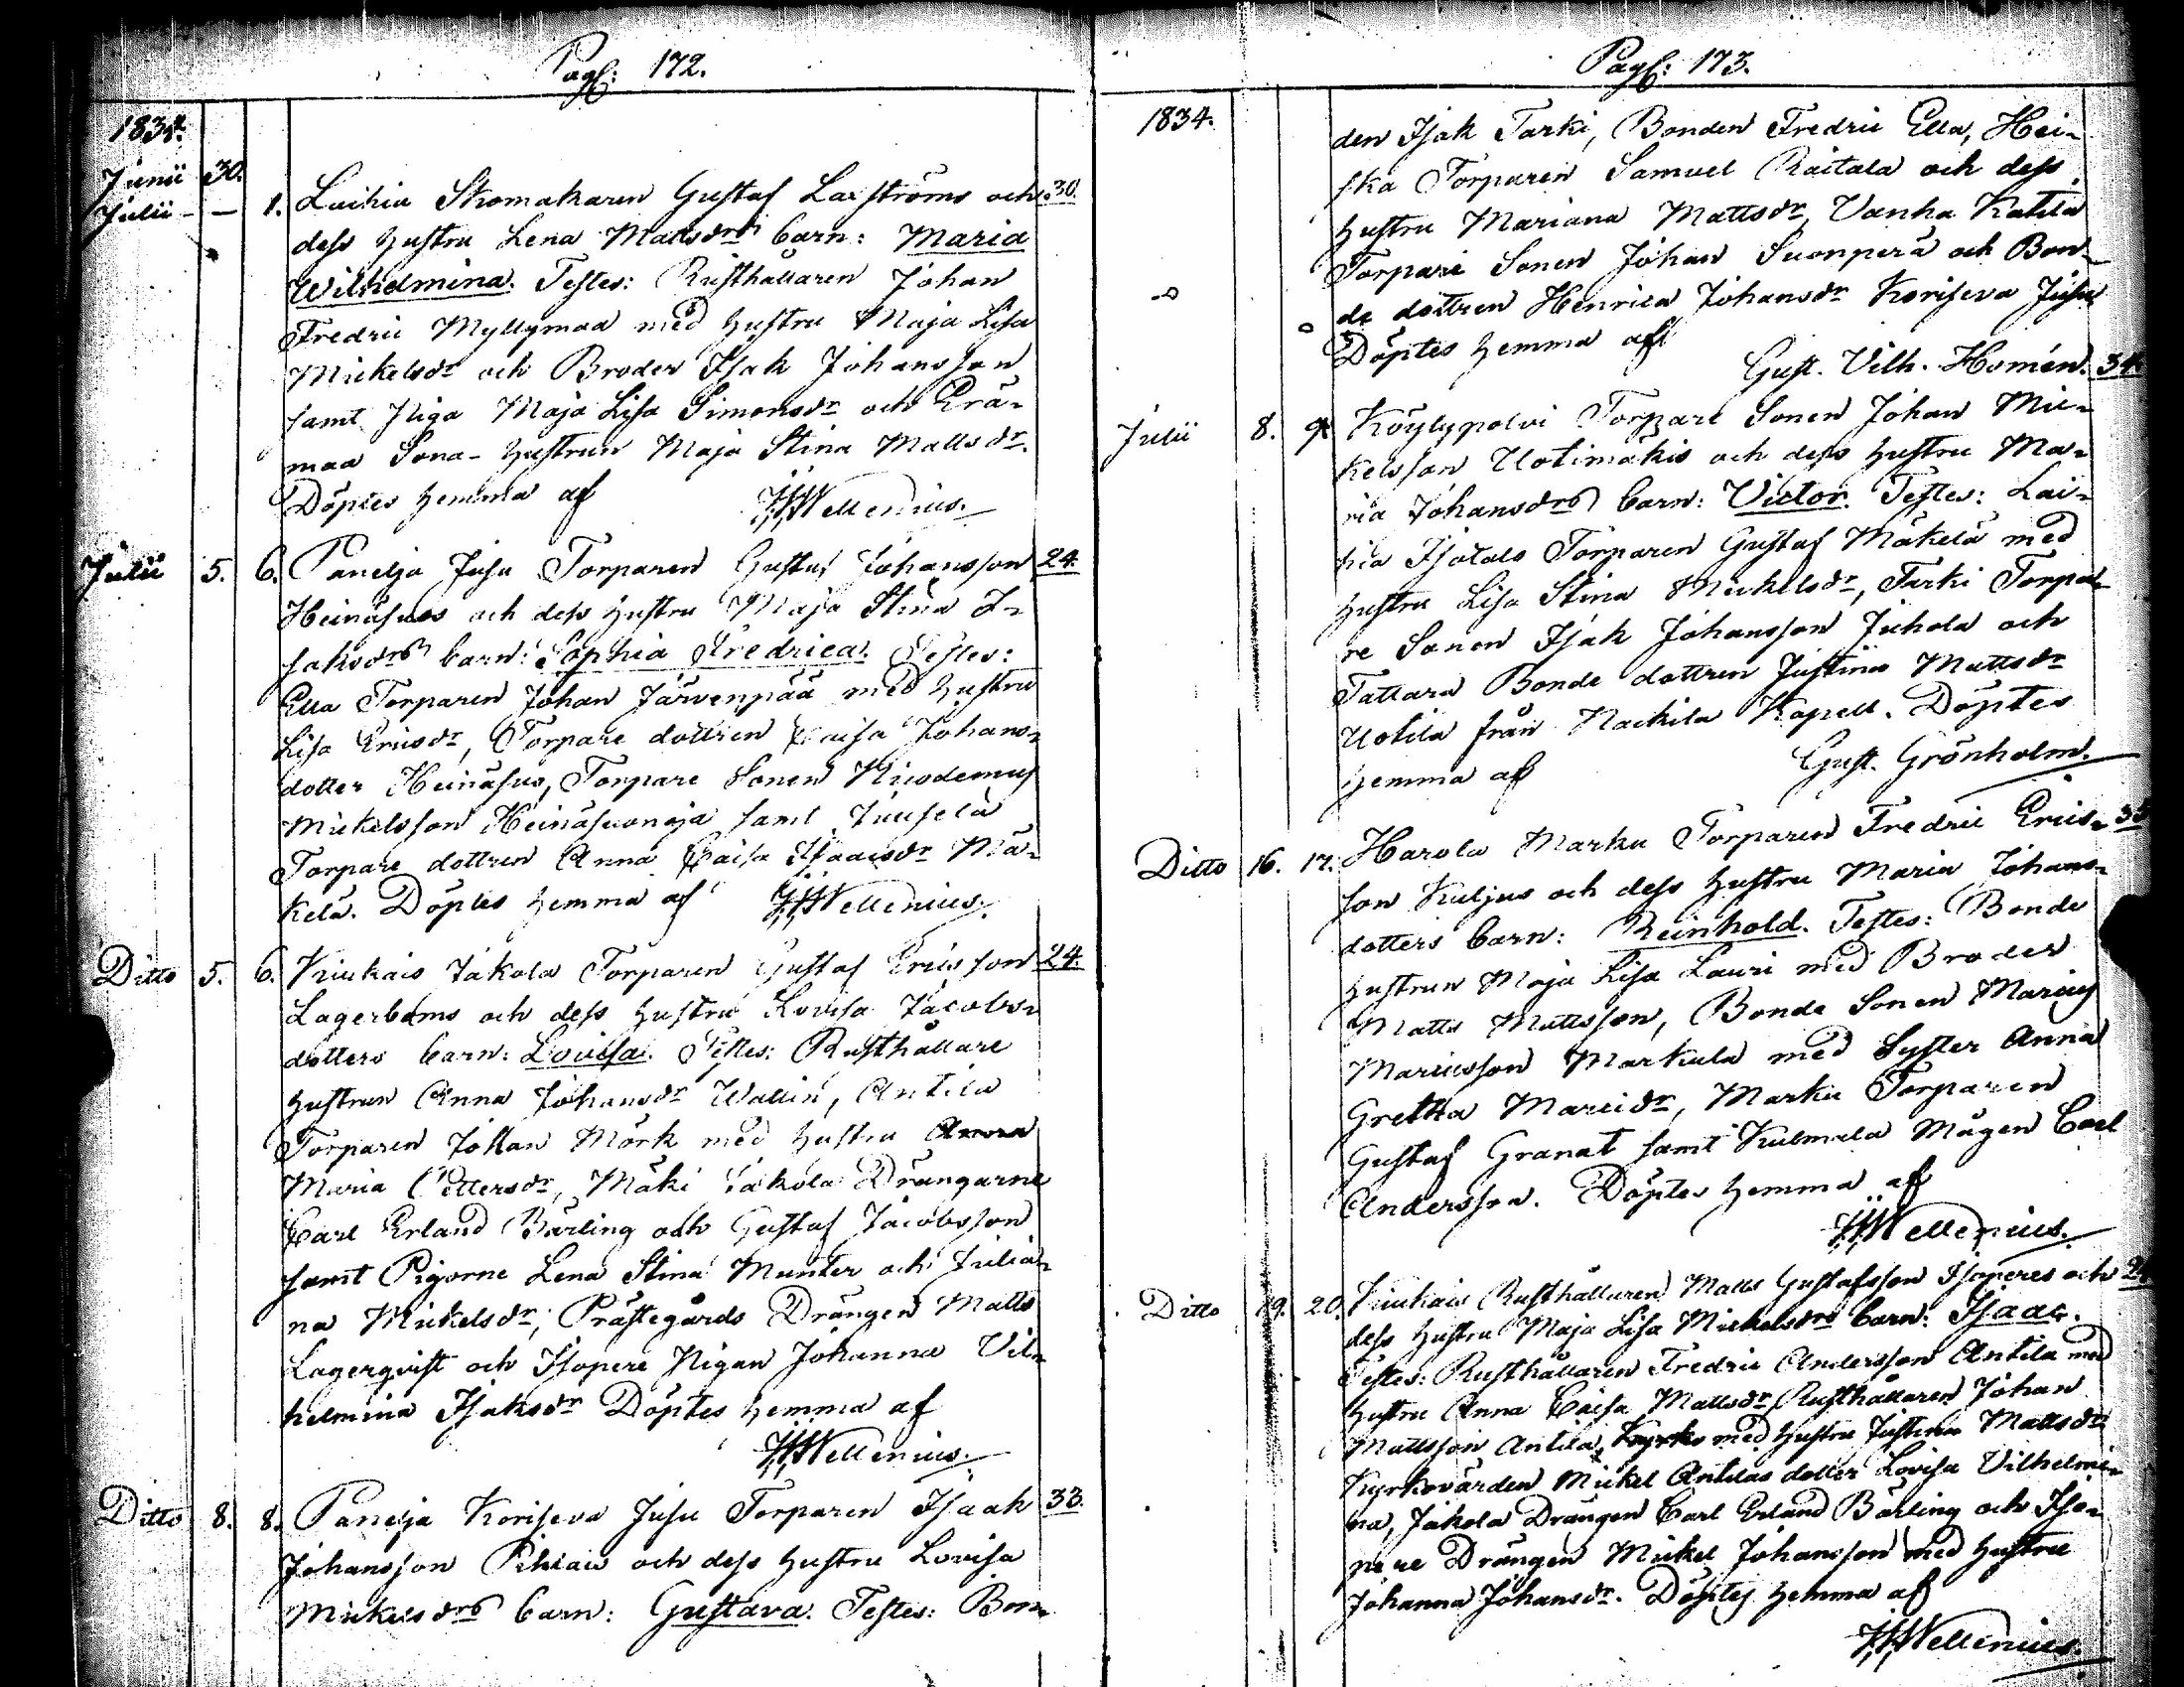 Pag: 172.
1834.
Junii 30.
Julii - — 1. Luikia Skomakaren Gustaf Laxströms och 30.
dess hustru Lena Mattsdrs barn: Maria
Wilhelmina. Testes: Rusthållaren Johan
Fredric Myllymaa med hustru Maja Lisa
Mickelsdr och Broder Isak Johansson
samt Piga Maja Lisa Simonsdr och Erä-
maa Sona-hustrun Maja Stina Mattsdr.
Döptes hemma af Wellenius.
Julii 5. 6. Panelja Jusu Torparen Gustaf Johansson 24.
Heinäsuos och dess hustru Maja Stina I-
saksdrs barn: Sophia Fredrica. Testes:
Ella Torparen Johan Järvenpää med hustru
Lisa Ericsdr, Torpare dottren Caisa Johans-
dotter Heinäsuo, Torpare Sonen Nicodemus
Mickelsson Heinäsuonoja samt Juusela
Torpare dottren Anna Caisa Isaacsdr Mä-
kelä. Döptes hemma af Wellenius.
Ditto 5. 6. Kiukais Jakola Torparen Gustaf Ericsson 24.
Lagerboms och dess hustru Lovisa Jacobs-
dotters barn: Lovisa. Testes: Rusthållare
hustrun Anna Johansdr Wallin, Antila
Torparen Johan Mörk med hustru Anna
Maria Pettersdr, Mäki Jakola Drängarne
Carl Erland Bärling och Gustaf Jacobsson
samt Pigorne Lena Stina Munter och Julia-
na Mickelsdr, Prästegårds Drängen Matts
Lagerqvist och Isopere Pigan Johanna Vil-
helmina Isaksdr Döptes hemma af
Wellenius.
Ditto 8. 8. Panelja Koriseva Jusu Torparen Isaak 33.
Johansson Pihlais och dess hustru Lovisa
Mickelsdrs barn: Gustava. Testes: Bon-
Pag: 173.
1834.
den Isak Tarki, Bonden Fredric Ella, Hei-
ska Torparen Samuel Raitala och dess
hustru Mariana Mattsdr, Vanha Katila
Torpare Sonen Johan Suonperä och Bon-
de dottren Henrica Johansdr Koriseva Jusu
Döptes hemma af
Gust. Vilh. Homén. 34.
Julii 8. 9. Köylypolvi Torpare Sonen Johan Mic-
kelsson Uotimäkis och dess hustru Ma-
ria Johansdrs barn: Victor. Testes: Lai-
hia Isotalo Torparen Gustaf Mäkelä med
hustru Lisa Stina Mickelsdr, Tarki Torpa-
re Sonen Isak Johansson Juhola och
Tattara Bonde dottren Justina Mattsdr
Uotila från Nackila Kapell. Döptes
hemma af Gust. Grönholm.
Ditto 16. 17. Harola Marku Torparen Fredric Erics- 35
son Kuljus och dess hustru Maria Johans-
dotters barn: Reinhold. Testes: Bonde
hustrun Maja Lisa Lauri med Broder
Matts Mattsson, Bonde Sonen Marcus
Marcusson Markula med Syster Anna
Gretha Marcidr, Marku Torparen
Gustaf Granat samt Kulmala Mågen Carl
Andersson. Döptes hemma af
Wellenius.
Ditto 19. 20. Kiukais Rusthållaren Matts Gustafsson Isoperes och
dess hustru Maja Lisa Mickelsdrs barn: Isaac.
Testes: Rusthållaren Fredric Andersson Antila med
hustru Anna Caisa Mattsdr, Rusthållaren Johan
Mattsson Antila, Kyrko med hustru Justina Mattsdr
Kyrkovärden Mickel Antilas dotter Lovisa Vilhelmi-
na, Jakola Drängen Carl Erland Bärling och Iso-
pere Drängen Mickel Johansson med hustru
Johanna Johansdr. Döptes hemma af
Wellenius.